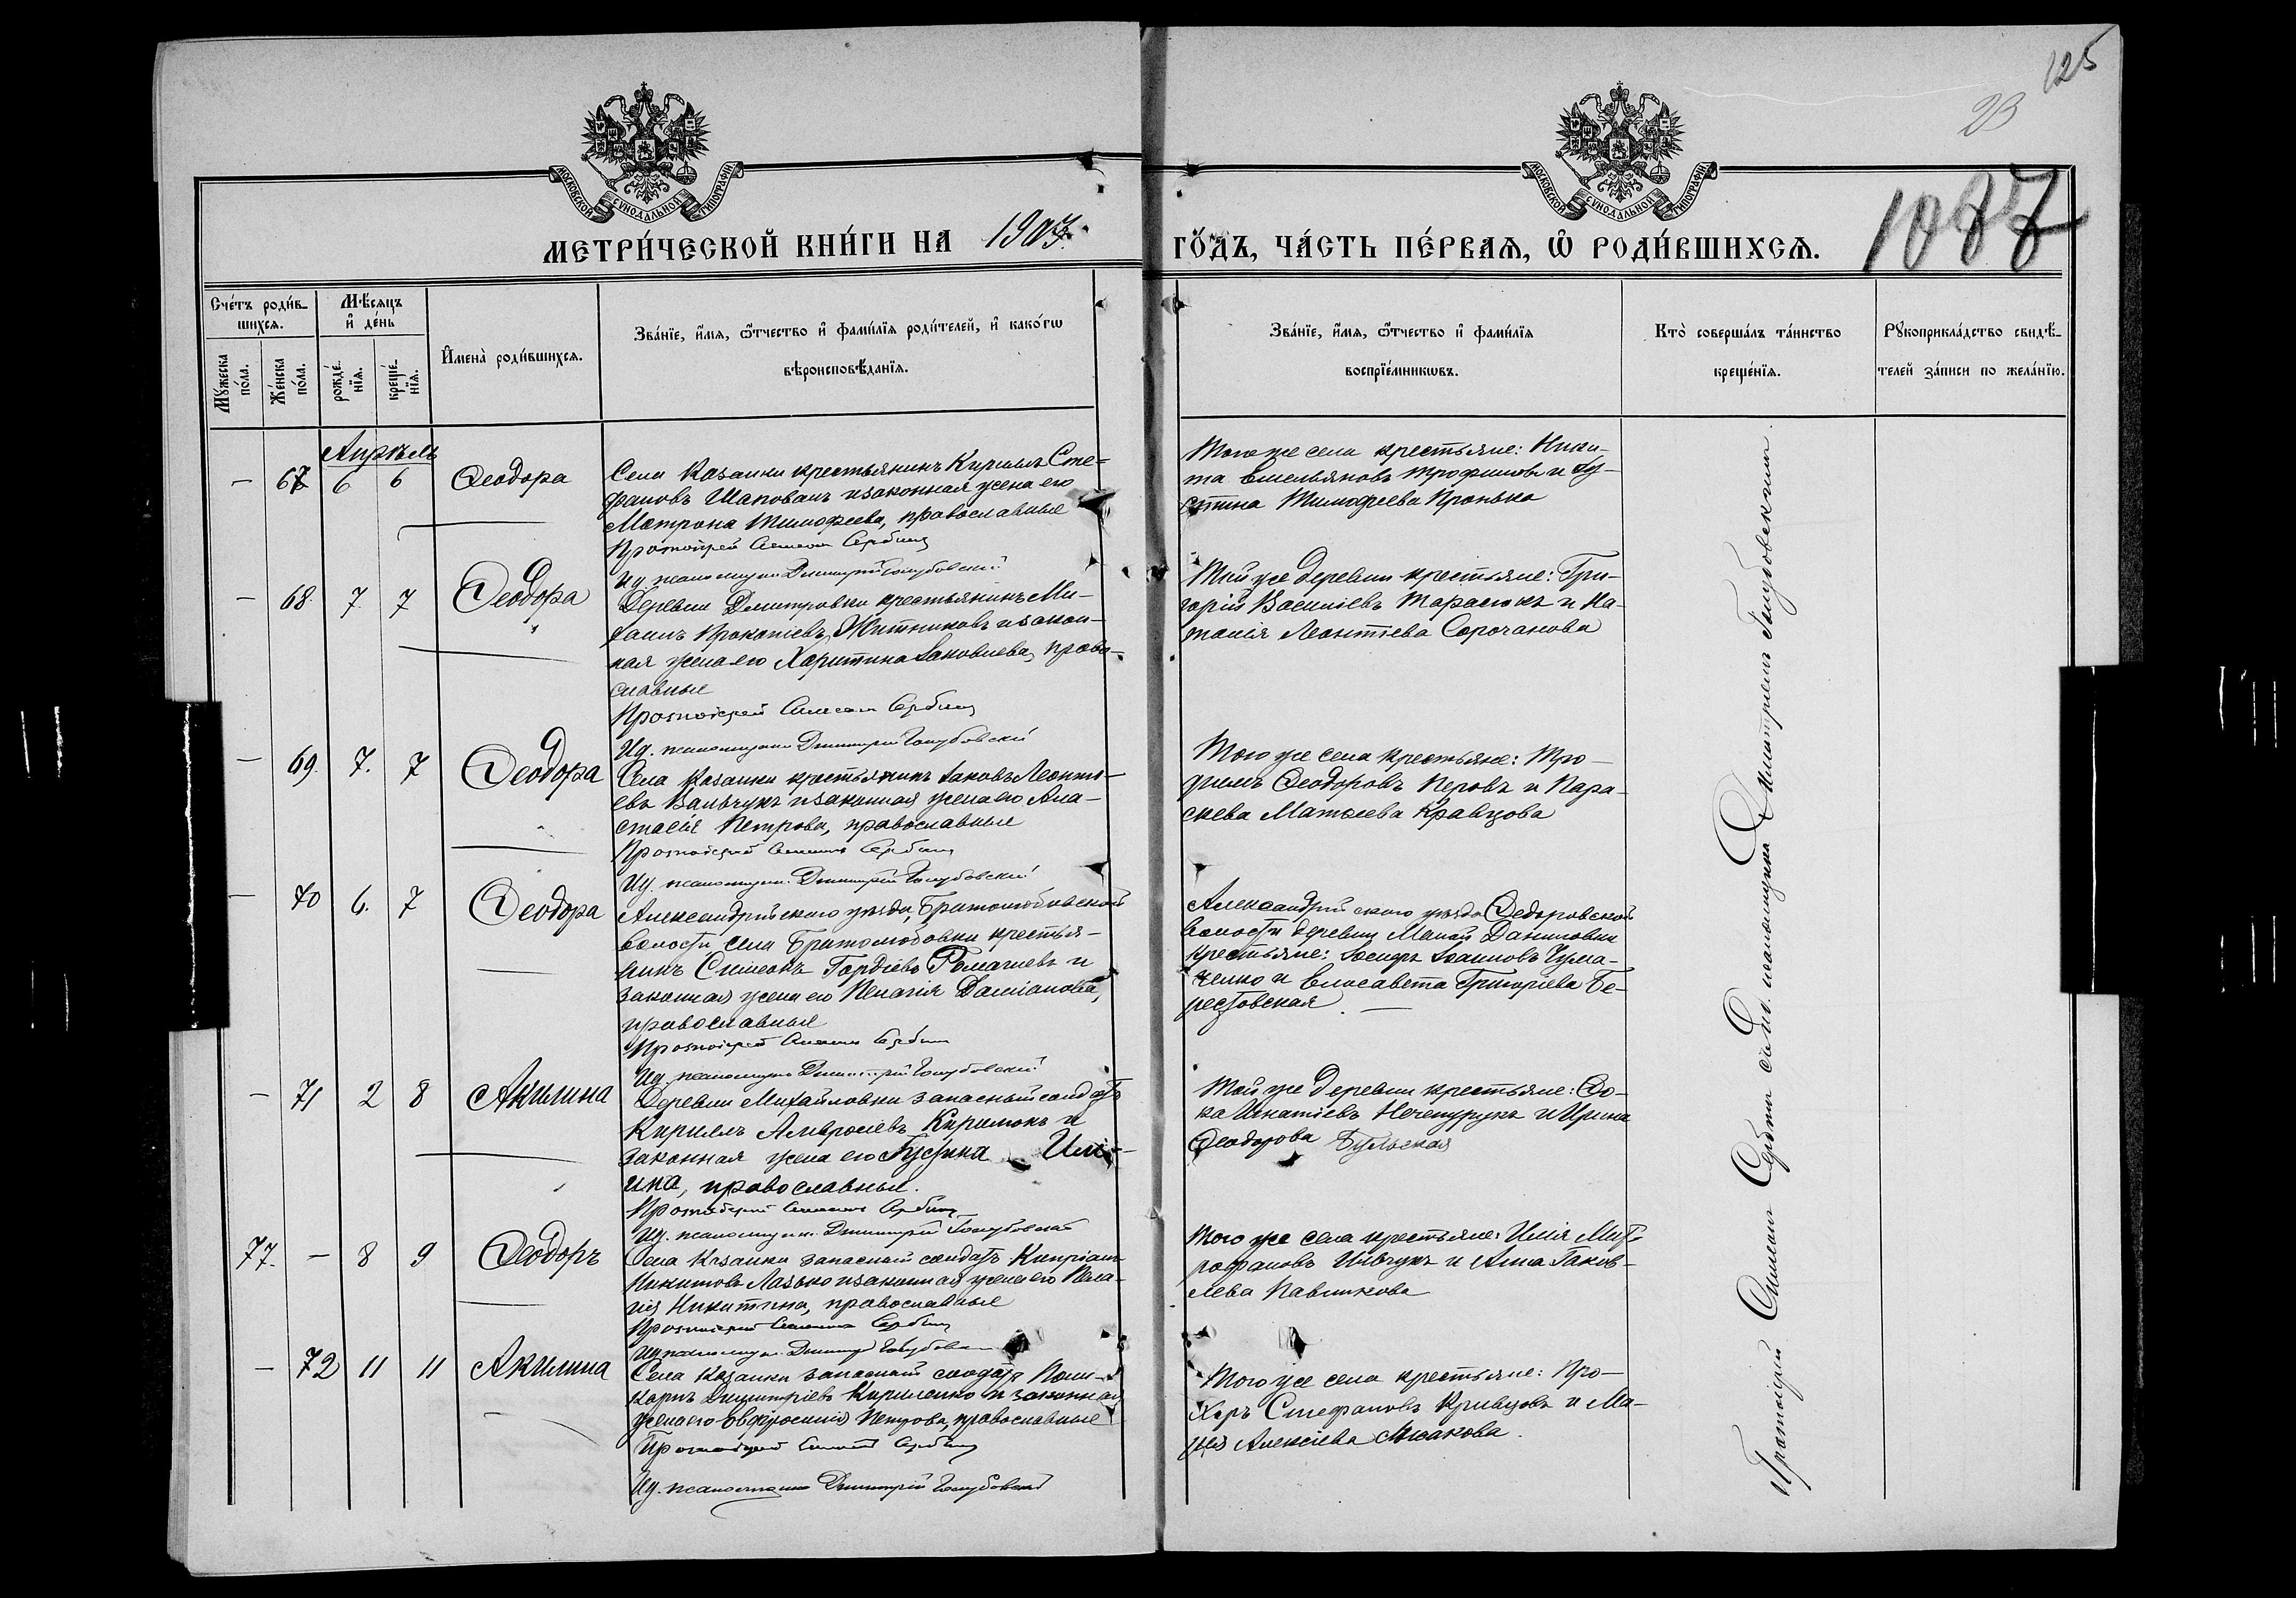 125
23
МОСКОВСКОЙ СѴНОДАЛЬНОЙ ТИПОГРАФІИ
МОСКОВСКОЙ СѴНОДАЛЬНОЙ ТИПОГРАФІИ
МЕТРИ́ЧЕСКОЙ КНИ́ГИ НА 1907
ГО́ДЪ, ЧА́СТЬ ПЕ́РВАЯ, Ѡ҆ РОДИ́ВШИХСЯ.
1087
Сче́тъ роди́в-
шихся.
Мѣ́сяцъ
и҆ де́нь
Мꙋ́жеска
по́ла.
Же́нска
по́ла.
рожде́-
нїя.
креще́-
нїя.
И҆мена̀ роди́вшихся.
Зва́нїе, и҆́мя, ѻ҆́тчество и҆ фами́лїя роди́телей, и҆ како́гѡ
вѣроисповѣ́данїя.
Зва́нїе, и҆́мя, ѻ҆́тчество и҆ фами́лїя
воспрїе́мникѡвъ.
Кто̀ соверша́лъ та́инство
креще́нїя.
Рꙋкоприкла́дство свидѣ́-
телей за́писи по жела́нїю.
Апрѣль
— 67 6 6 Ѳеодора
Села Казанки крестьянинъ Кириллъ Сте-
фановъ Шаповалъ и законная жена его
Матрона Тимофеева, православные
Протоіерей Симеонъ Сербинъ
Ид. псаломщика Димитрій Голубовскій
Того же села крестьяне: Ники-
та Емельяновъ Трофимовъ и Іу-
стина Тимофеева Пронько
— 68. 7. 7 Ѳеодора
Деревни Димитровки крестьянинъ Ми-
хаилъ Прокопіевъ Житниковъ и закон-
ная жена его Харитина Іаковлева, право-
славные
Протоіерей Симеонъ Сербинъ
Ид. псаломщика Димитрій Голубовскій
Той же деревни крестьяне: Гри-
горій Василіевъ Тарасюкъ и На-
талія Леонтіева Сорочанова
— 69. 7. 7 Ѳеодора
Села Казанки крестьянинъ Іаковъ Леонті-
евъ Вальчукъ и законная жена его Ана-
стасія Петрова, православные
Протоіерей Симеонъ Сербинъ
Ид. псаломщика Димитрій Голубовскій
Того же села крестьяне: Тро-
фимъ Ѳеодоровъ Перовъ и Пара-
скева Матѳеева Кравцова
— 70 6. 7 Ѳеодора
Александрійскаго уѣзда, Братолюбовской
волости села Братолюбовки крестья-
нинъ Симеонъ Гордіевъ и
законная жена его Пелагія Даміанова,
православные
Протоіерей Симеонъ Сербинъ
Ид. псаломщика Димитрій Голубовскій
Александрійскаго уѣзда Ѳедоровской
волости деревни Малой Даниловки
крестьяне: Іосифъ Іоанновъ Чума-
ченко и Елисавета Григоріева Бе-
рестовская
— 71 2 8 Акилина
Деревни Михайловки запасный солдатъ
Кириллъ Амвросіевъ Кирилюкъ и
законная жена его Іустина Илі-
ина, православные.
Протоіерей Симеонъ Сербинъ
Ид. псаломщика Димитрій Голубовскій
Той же деревни крестьяне: Ѳо-
ка Игнатіевъ Нечепурукъ и Ирина
Ѳеодорова Бульская
77. — 8 9 Ѳеодоръ
Села Казанки запасный солдатъ Кипріанъ
Никитовъ Лазько и законная жена его Пела-
гія Никитина, православные
Протоіерей Симеонъ Сербинъ
Ид. псаломщика Димитрій Голубовскій
Того же села крестьяне: Илія Мит-
рофановъ Ильчукъ и Анна Іаков-
лева Павликова
— 72 11 11 Акилина
Села Казанки запасный солдатъ Поли-
карпъ Димитріевъ Кириленко и законная
жена его Евфросинія Петрова, православные
Протоіерей Симеонъ Сербинъ
Ид. псаломщика Димитрій Голубовскій
Того же села крестьяне: Про-
хоръ Стефановъ Кривцовъ и Ма-
рія Алексіева
Протоіерей Симеонъ Сербинъ съ и.д. псаломщика Димитріемъ Голубовскимъ